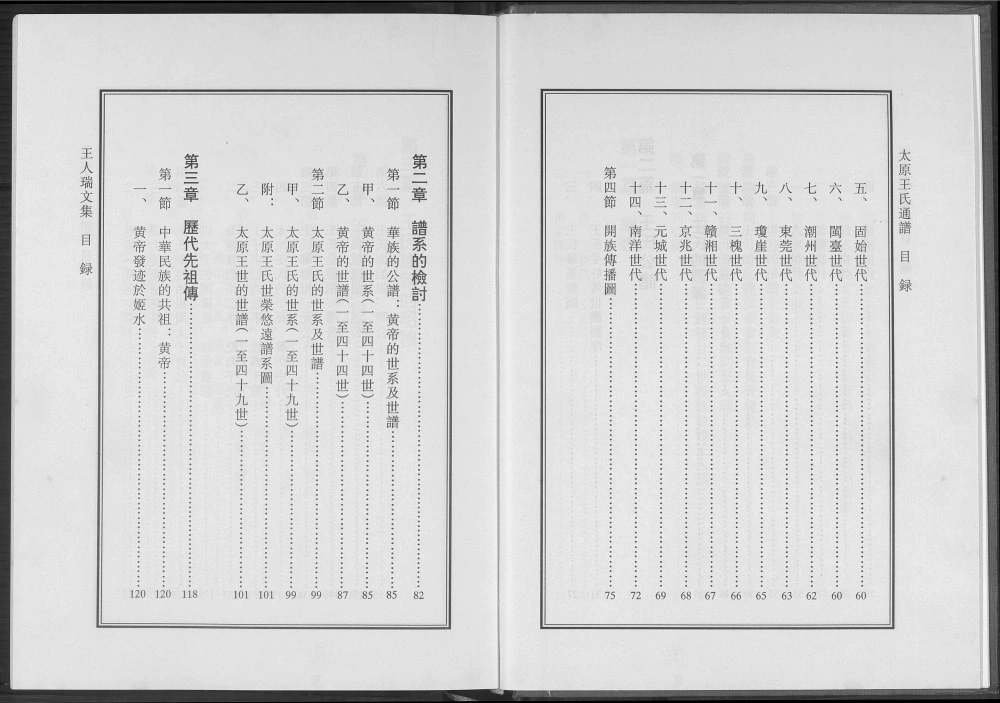 太原王氏通譜 目 録
五、 固始世代……60
六、 閩臺世代……60
七、 潮州世代……62
八、 東莞世代……63
九、 瓊崖世代……65
十、 三槐世代……66
十一、贛湘世代……67
十二、京兆世代……68
十三、元城世代……69
十四、南洋世代……72
第四節 開族傳播圖……75
第二章 譜系的檢討……82
第一節 華族的公譜：黄帝的世系及世譜……85
甲、 黄帝的世系（一至四十四世）……85
乙、 黄帝的世譜（一至四十四世）……87
第二節 太原王氏的世系及世譜……99
甲、 太原王氏的世系（一至四十九世）……99
附： 太原王氏世榮悠遠譜系圖……101
乙、 太原王世的世譜（一至四十九世）……101
第三章 歷代先祖傳……118
第一節 中華民族的共祖：黄帝……120
一、 黄帝發迹於姬水……120
王人瑞文集 目 録